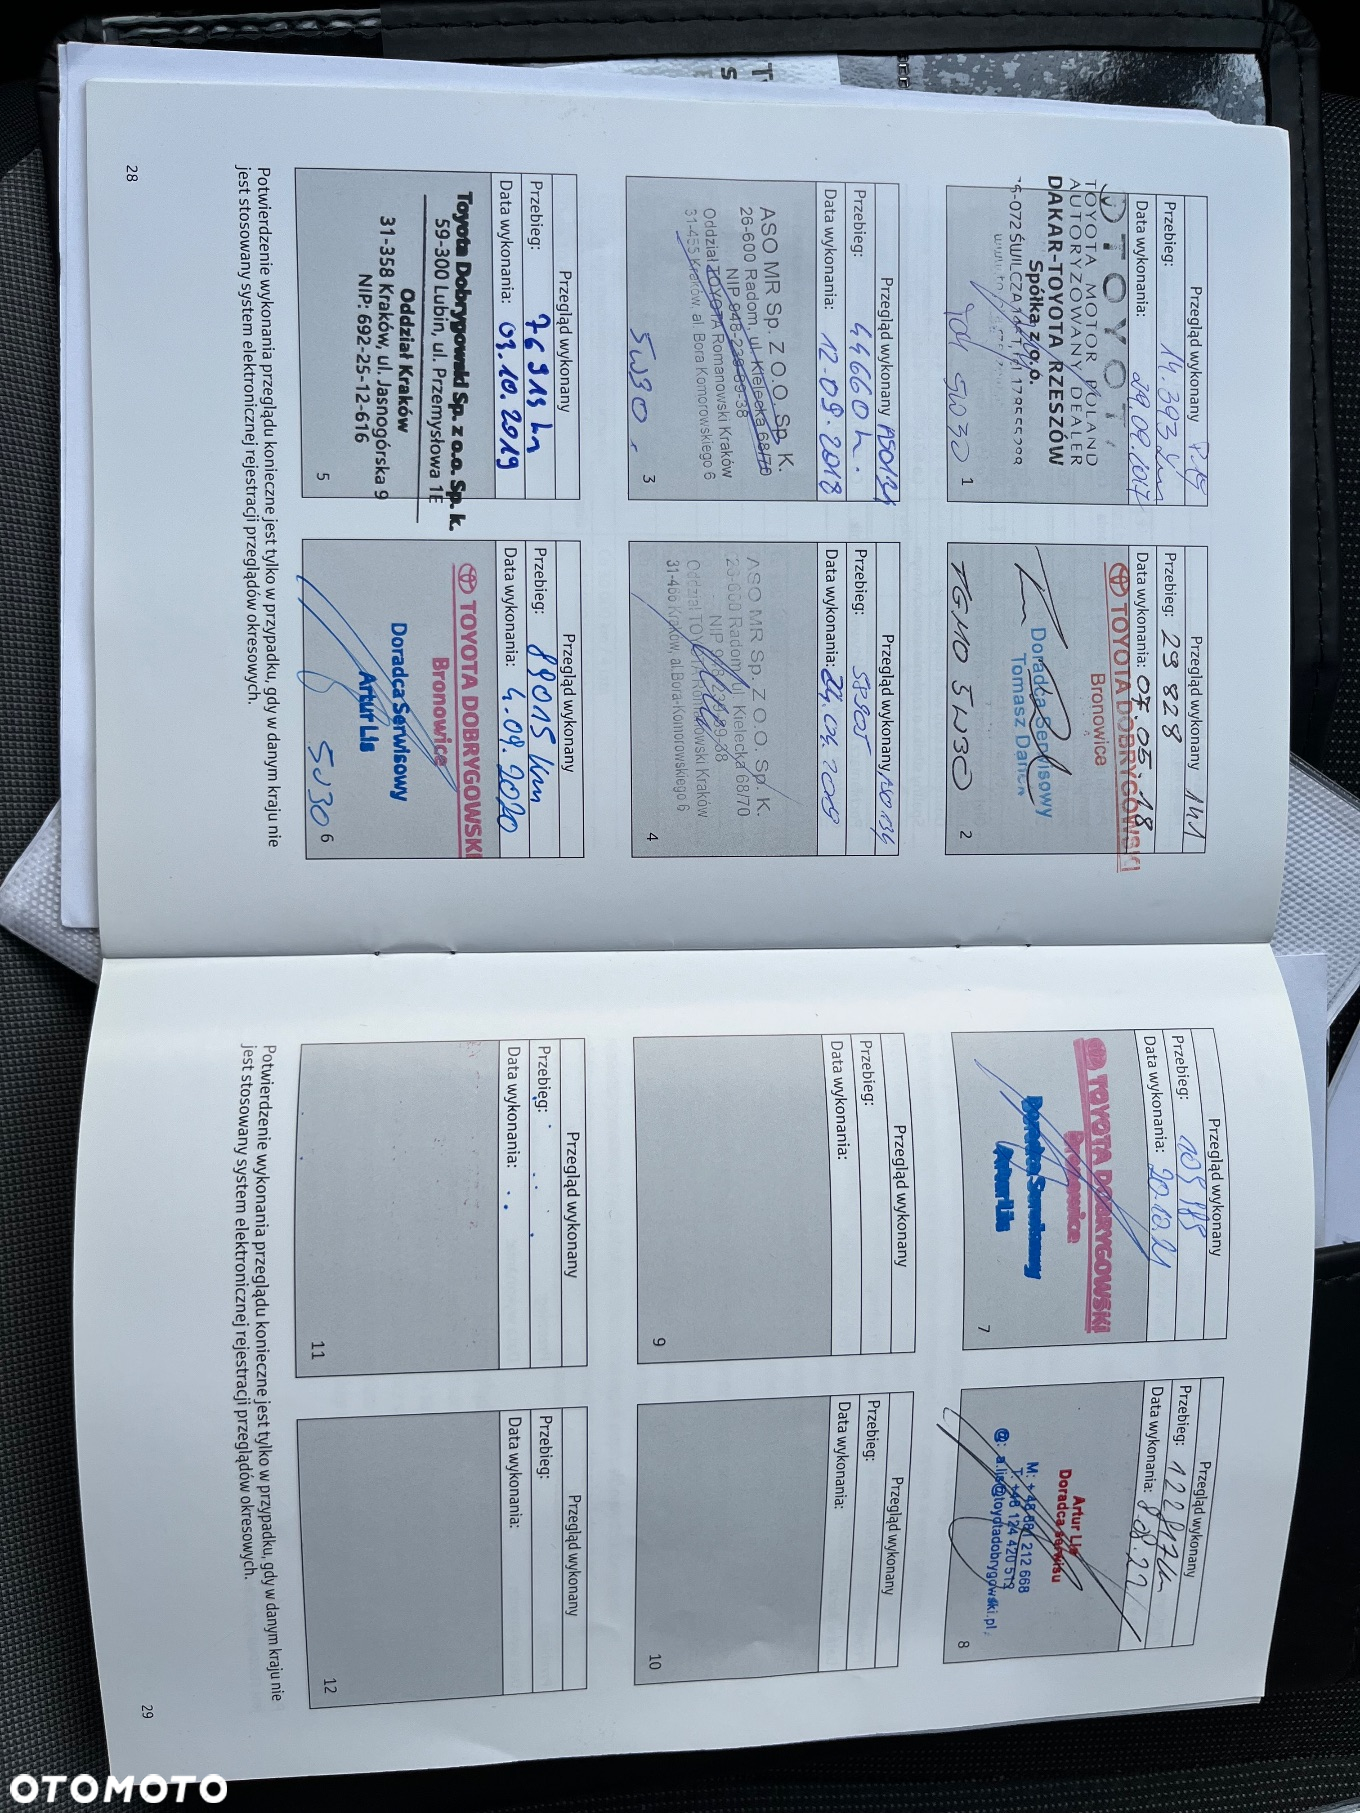 Przegląd wykonany P.15
Przebieg: 14.393 km
Data wykonania: 29.09.2017
TOYOT
TOYOTA MOTOR POLAND
AUTORYZOWANY DEALER
DAKAR-TOYOTA RZESZÓW
Spółka z o.o.
5W30
1
Przegląd wykonany 141
Przebieg: 29 828
Data wykonania: 07.05.18
TOYOTA DOBRYGOWSKI
Bronowice
Doradca Serwisowy
Tomasz
TGMO 5W30
2
Przegląd wykonany
Przebieg: 44660 h.
Data wykonania: 12-09-2018
ASO MR Sp. Z O.O. Sp. K.
26-600 Radom, ul. Kielecka 68/70
NIP 948-239-89-38
Oddział TOYOTA Romanowski Kraków
31-455 Kraków, al. Bora Komorowskiego 6
5W30
3
Przegląd wykonany
Przebieg: 58905
Data wykonania: 24.04.2019
ASO MR Sp. Z O.O. Sp. K.
26-600 Radom, ul. Kielecka 68/70
NIP 948-239-89-38
Oddział TOYOTA Romanowski Kraków
Kraków, al.Bora-Komorowskiego 6
4
Przegląd wykonany
Przebieg: 76913 km
Data wykonania: 03.10.2019
Toyota Dobrygowski Sp. z o.o. Sp. k.
59-300 Lubin, ul. Przemysłowa 1E
Oddział Kraków
31-358 Kraków, ul. Jasnogórska 9
NIP: 692-25-12-616
5
Przegląd wykonany
Przebieg: 89015 km
Data wykonania: 4.09.2020
TOYOTA DOBRYGOWSKI
Bronowice
Doradca Serwisowy
Artur Lis
5W30
6
Potwierdzenie wykonania przeglądu konieczne jest tylko w przypadku, gdy w danym kraju nie
jest stosowany system elektronicznej rejestracji przeglądów okresowych.
28
Przegląd wykonany
Przebieg:
Data wykonania: 20.10.21
TOYOTA DOBRYGOWSKI
Bronowice
Doradca Serwisowy
Artur Lis
7
Przegląd wykonany
Przebieg: 122817km
Data wykonania: 8.08.22
Artur Lis
Doradca serwisu
M: +48 881 212 668
T: +48 124 420 512
@: a.lis@toyotadobrygowski.pl
8
Przegląd wykonany
Przebieg:
Data wykonania:
9
Przegląd wykonany
Przebieg:
Data wykonania:
10
Przegląd wykonany
Przebieg:
Data wykonania:
11
Przegląd wykonany
Przebieg:
Data wykonania:
12
Potwierdzenie wykonania przeglądu konieczne jest tylko w przypadku, gdy w danym kraju nie
jest stosowany system elektronicznej rejestracji przeglądów okresowych.
29
OTOMOTO